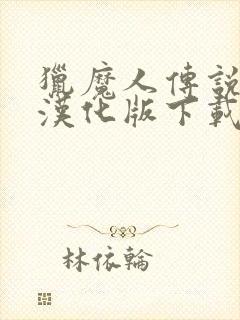 獵魔人傳說
漢化版下載
林依輪